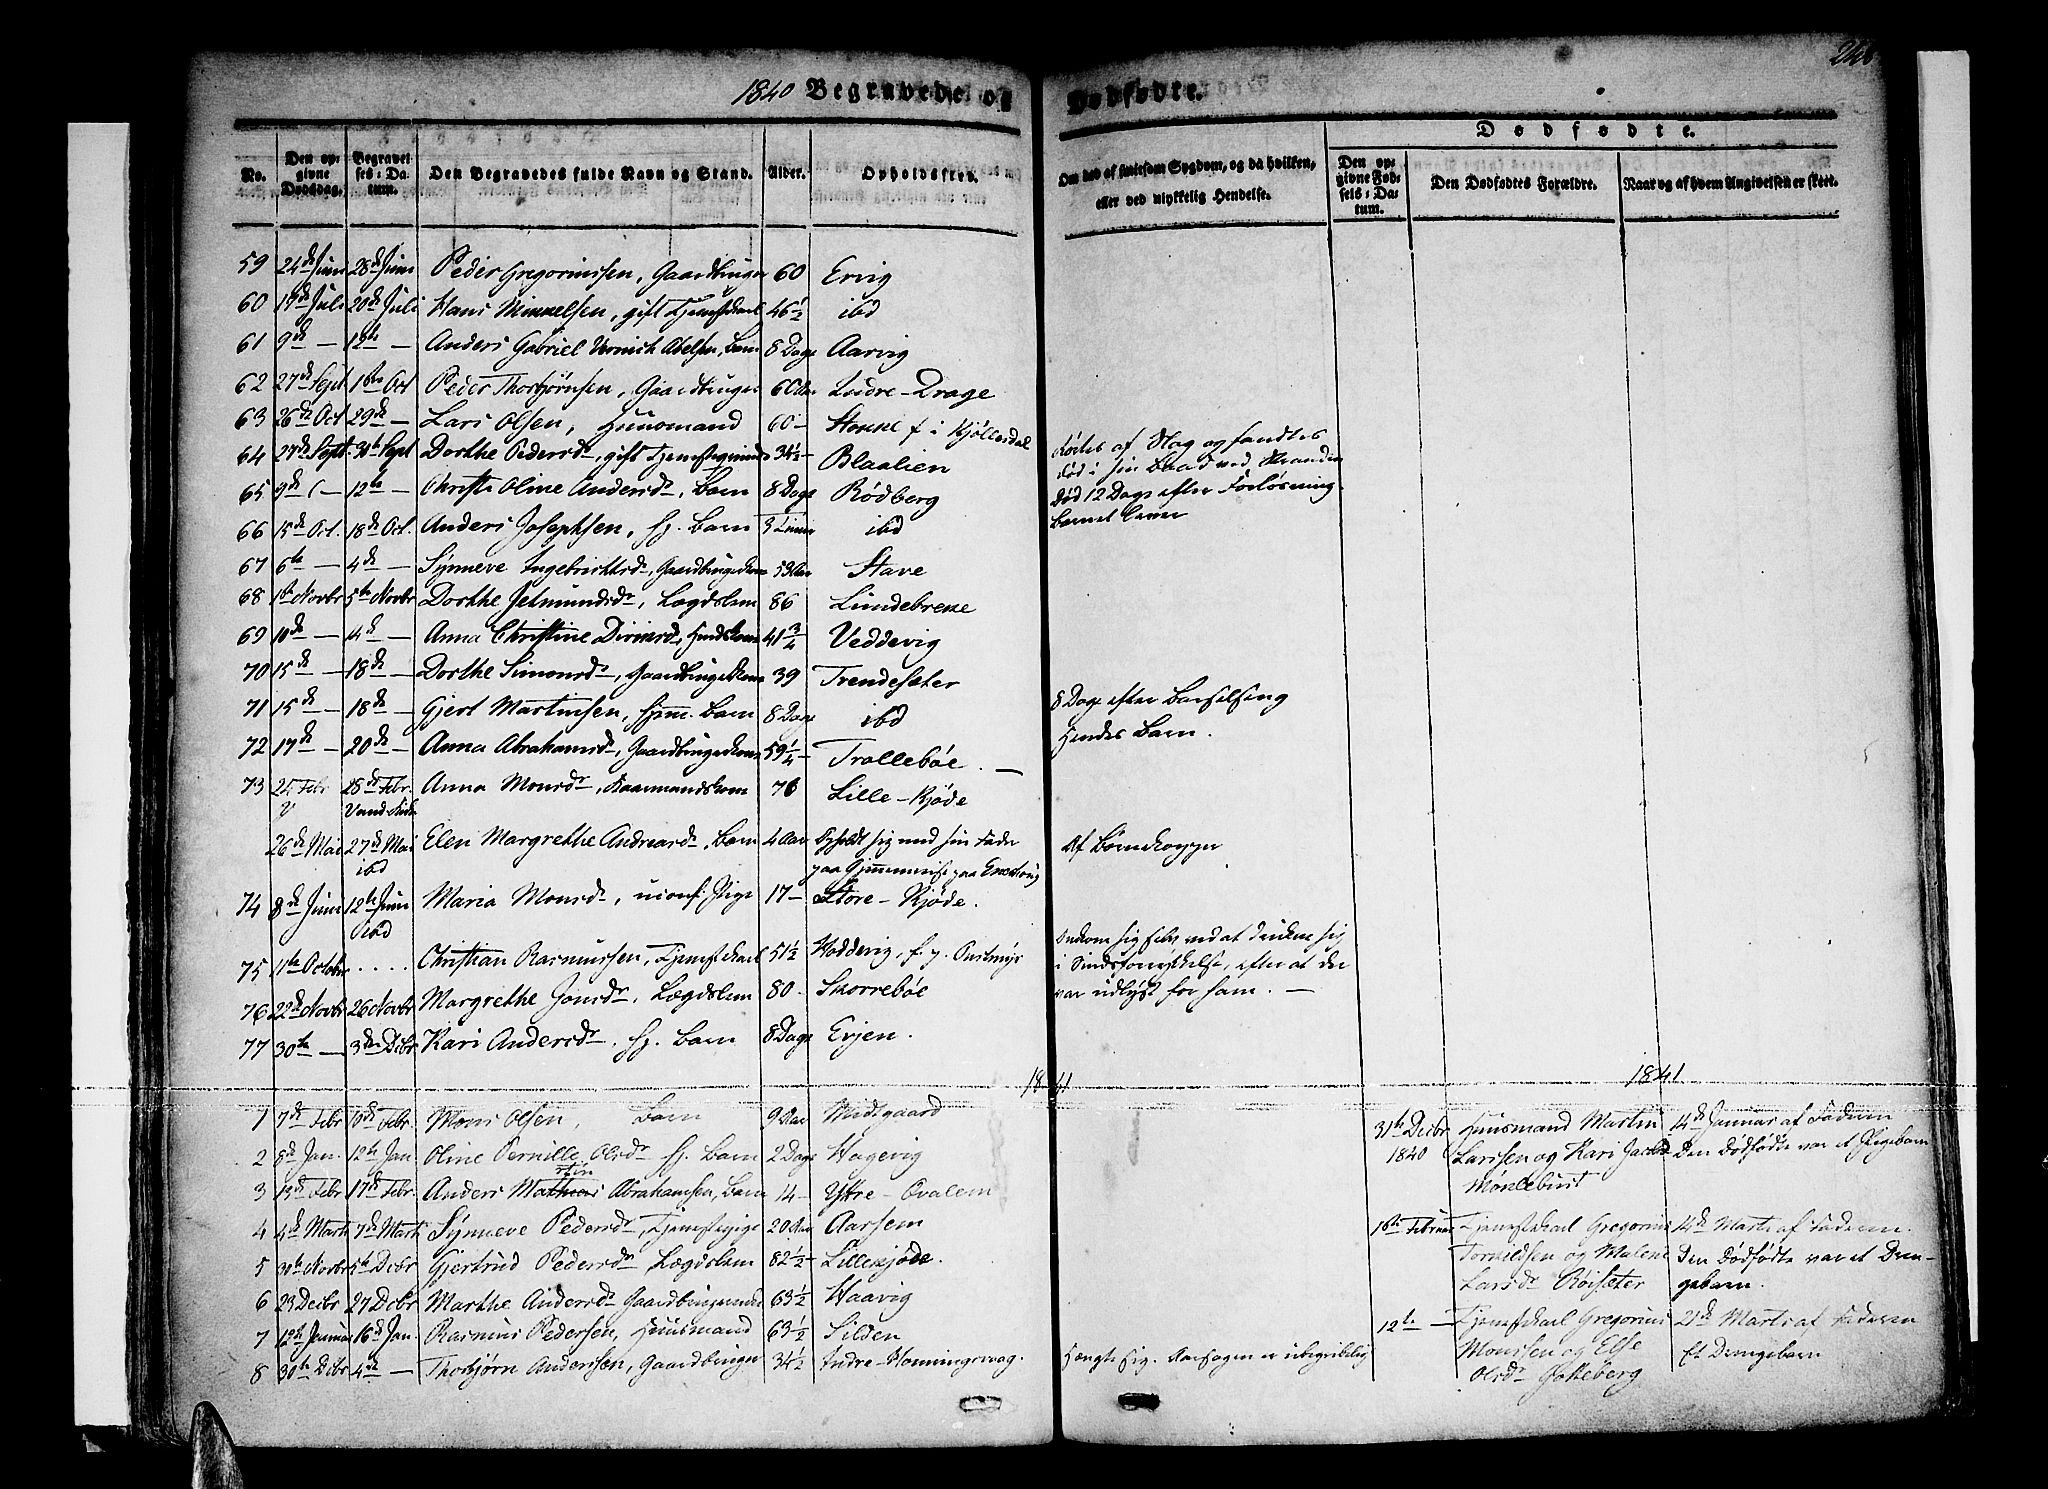 1840 Begravede og Dødfødte.
No. Den opgivne Dødsdag. Begravelses-Datum. Den Begravedes fulde Navn og Stand. Alder. Opholdssted.
59 24de Juni 28de Juni Peder Gregoriussen, Gaardbruger 60 Ervig
60 17de Juli 20de Juli Hans Mikkelsen, gift Tjenestekarl 46½ ibd
61 9de — 12te — Anders Gabriel Abelsen, Barn 8 Dage Aarvig
62 27de Sept 1ste Oct Peder Thorbjørnsen, Gaardbruger 60 Aar Indre-Drage
63 26de Oct 29de — Lars Olsen, Huusmand 60 — Stokke f. i Kjøllesdal
64 27de Sept 30te Sept Dorthe Pedersdr, gift 34½ — Blaalien
65 9de 12te — Christi Oline Andersdr, Barn 8 Dage Rødberg
66 15de Oct. 18de Oct. Anders Josephsen, Hj. Barn 3 Timer ibd
67 6te — 4de — Synneve Ingebrichtsdr, Gaardbrugerkone 53 Aar Stave
68 1ste Novbr 5te Novbr Dorthe Jetmundsdr, Lægdslem 86 Lundebrekke
69 10de — 14de — Anna Christine Huuskone 41¾ Veddevig
70 15de — 18de — Dorthe Simonsdr, Gaardbrugerkone 39 Trendesæter
71 15de — 18de — Gjert Martinsen, Hjem. Barn 8 Dage ibd
72 17de — 20de — Anna Abrahamsdr, Gaardbrugerkone 59¼ Trollebøe. —
73 25 Febr 28de Febr. Anna Monsdr, Kaarmandskone 76 Lille-Kjøde
26de Mai 27de Mai Elen Margrethe Andreasdr, Barn 4 Aar Opholdt sig med sin Fader
ibd paa
74 8de Juni 12te Juni Maria Monsdr, uconf. Pige 17 — Store-Kjøde.
ibd
75 11te Octobr .... Christian Rasmussen, Tjenestekarl 51½ Hoddevig, f. p.
76 22de Novbr 26 Novbr Margrethe Jonsdr, Lægdslem 80 — Skorrebøe
77 30te — 3die Decbr Kari Andersdr. Hj. Barn 8 Dage Ervjen.
1841
1 7de Febr 10de Febr. Mons Olsen, Barn 9 Aar Midtgaard
2 8de Jan. 12te Jan Oline Pernille Olsdr Hj. Barn 2 Dage Hagevig
3 13de Febr 17de Febr. Anders Mathias Abrahamsen, Barn 14 — Ytre-Qvalem
4 4de Marts 7de Marts Synneve Pedersdr, Tjenestepige 20 Aar Aarsem
5 30te Novbr 5te Decbr Gjertrud Pedersdr Lægdslem 82½ — Lillekjøde.
6 23 Decbr 27 Decbr Marthe Andersdr Gaardbrugerenke 63½ Haavig
7 12te Januar 16de Jan Rasmus Pedersen, Huusmand 63½ Silden
8 30te Decbr 4de — Thorbjørn Anderssen, Gaardbruger 34½ Indre-Honningsvaag.
248
Om død af smitsom Sygdom, og da hvilken,
eller ved ulykkelig Hendelse.
Dødfødte.
Den opgivne Fødsels-Datum. Den Dødfødtes Forældre. Naar og af hvem Angivelsen er skeet.
af Slag og fandtes
død i sin Baad ved Stranden
Død 12 Dage efter Forløsning.
Barnet lever
8 Dage efter Barselseng
Hendes Barn.
Af Børnekopper
Omkom sig selv ved at drukne sig
i Sindsforrykkelse, efter at der
var udlyst for ham. —
1841
31te Decbr 1840 Huusmand Martin Larssen og Kari 14de Januar af Faderen
Den Dødfødte var et Pigebarn
1ste Februar Tjenestekarl Gregorius Torkildsen og Malene Larsdr Røisæter 14de Marts af Faderen.
Den Dødfødte var et Drengebarn.
12te — Tjenestekarl Gregorius Monssen og Else Olsdr Gotteberg 21de Marts af Faderen
Et Drengebarn
Hængte sig. Aarsagen er ubegribelig